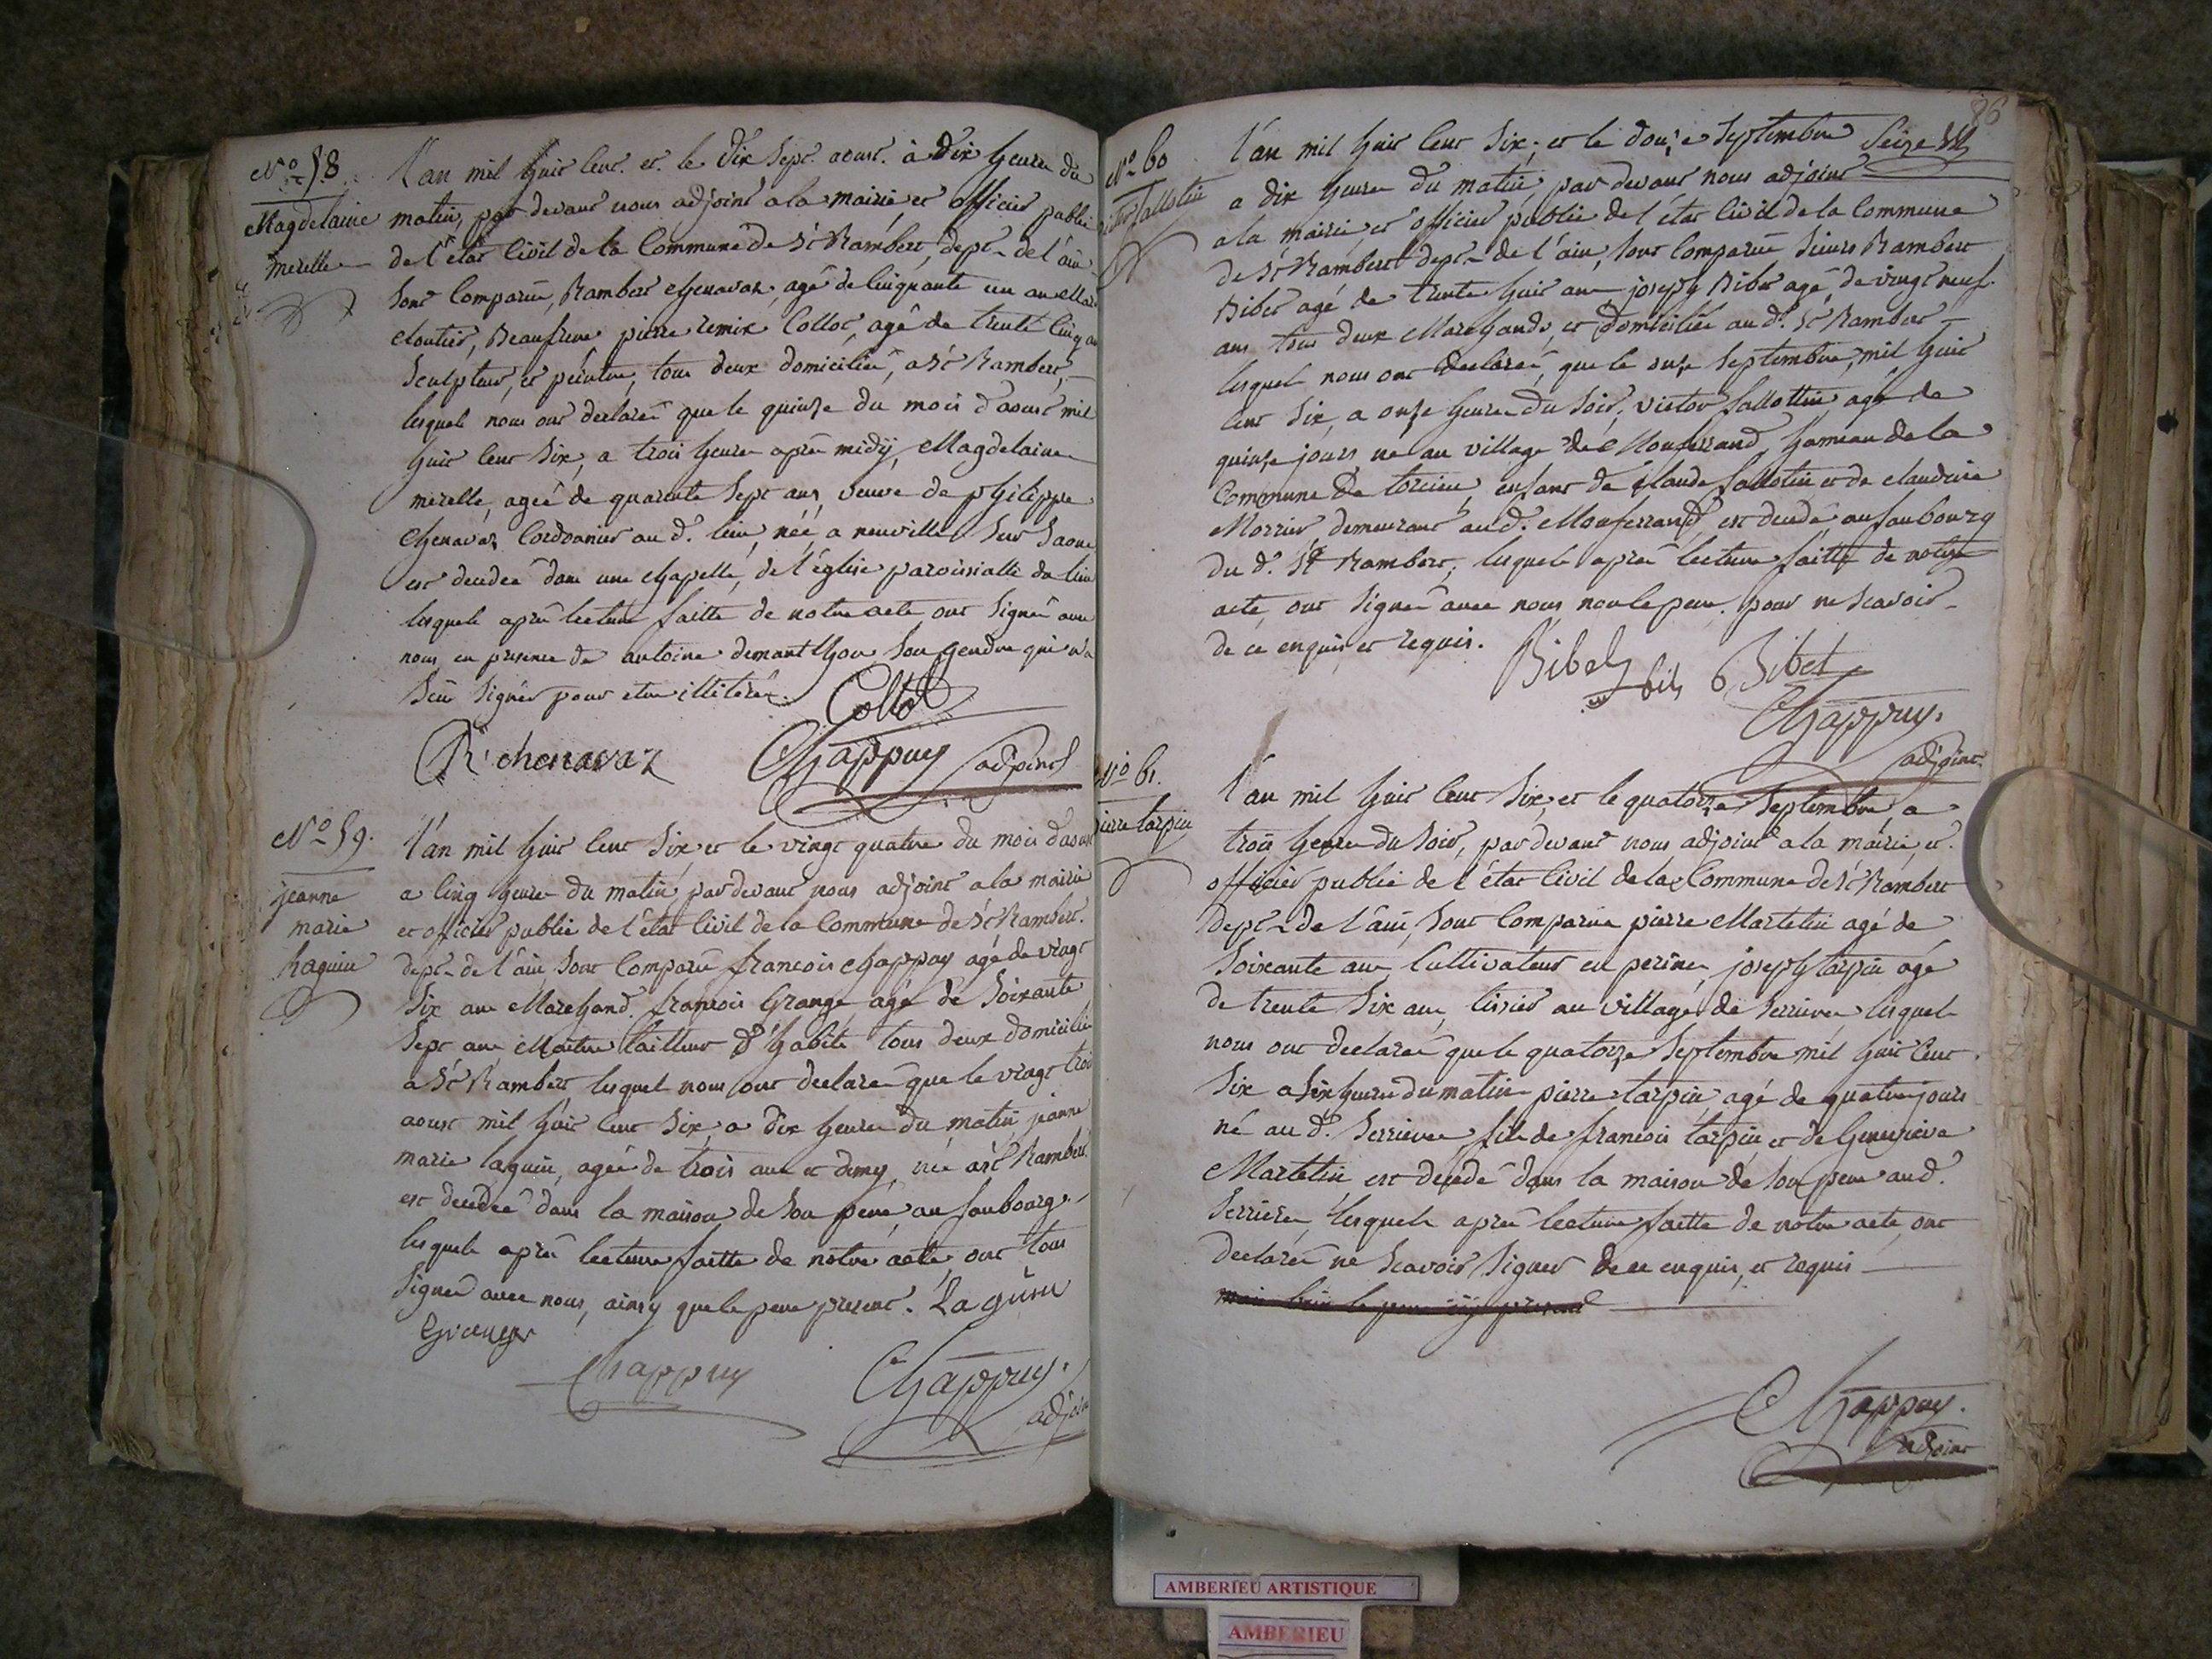 N.o 58
Magdelaine
merelle
L'an mil huit Cent. et. le dix Sept. aoust. à dix heures du
matin, par devant nous adjoint a la mairie et officier public
de l'état Civil de la Commune de St Rambert, dept. de l'ain
Sont Comparus, Rambert Chenavaz, agé de Cinquante un ans Mare
Cloutier, Beaufrere pierre remix Collot, agé de trente Cinq an
Sculpteur, et peintre, tous deux domiciliés, a St Rambert,
lesquels nous ont declarés que le quinze du mois d'aoust mil
huit Cent Six, a trois heures après midÿ, Magdelaine
merelle, agée de quarante Sept ans, veuve de philippe
Chenavaz Cordonnier au d. lieu, née, a neuville Sur Saone
est decedée dans une Chapelle, de l'église paroissialle du lieu
lesquels après lecture faitte de notre acte ont Signés avec
nous en presence de antoine demantthon Son gendre qui n'a
Seu Signer pour etre illiteré.
Collot
R. chenavaz
Chappuy adjoint
N.o 59.
jeanne
marie
haguin
L'an mil huit Cent Six, et le vingt quatre du mois d'aoust
a Cinq heures du matin par devant nous adjoint a la mairie
et officier public de l'état Civil de la Commune de St Rambert.
dept. de l'ain Sont Comparus francois Chappuy agé de vingt
Six ans Marchand. francois Grange, agé de Soixante
Sept ans Maitre tailleur d'habits tous deux domiciliés
a St Rambert lesquel nous ont declarés que le vingt trois
aoust mil huit Cent Six, a dix heures du matin, jeanne
marie laguin, agée de trois ans et demy, née a St Rambert.
est decedée dans la maison de Son pere, au faubourg
lesquels après lecture faitte de notre acte, ont tous
Signés avec nous, ainsy que le pere present. Laguin
Grange
Chappuy
Chappuy.
adjoint
86
N.o 60
victor fallotin
L'an mil huit Cent Six, et le douze Septembre Seize
a dix heures du matin, par devant nous adjoint
a la mairie, et officier public de l'état Civil de la Commune
de St Rambert dept. de l'ain, Sont Comparus Sieurs Rambert
Bibet agé de trente huit ans joseph Bibet agé de vingt neuf
ans tous deux Marchands, et domiciliés au d. St Rambert
lesquels nous ont declarés, que le onze Septembre, mil huit
Cent Six, a onze heures du Soir, victor fallottin agé de
quinze jours né au village de Monferrand, hameau de la
Commune de torcieu, enfant de Claude fallotin et de claudine
Morrier, demeurant au d. Monferrand, est decedé au faubourg
du d. St Rambert, lesquels après lecture faitte de notre
acte, ont Signés avec nous non le pere. pour ne Scavoir
de ce enquis et requis.
Bibet fils Bibet
Chappuy.
adjoint
N.o 61.
pierre tarpin
L'an mil huit Cent Six, et le quatorze Septembre, a
trois heures du Soir, par devant nous adjoint a la mairie, et.
officier public de l'état Civil de la Commune de St Rambert
dept. de l'ain, Sont Comparus pierre Martelin agé de
Soixante ans, Cultivateur joseph tarpin agé
de trente Six ans, tissier au village de Serrieres lesquels
nous ont declarés que le quatorze Septembre mil huit Cent
Six a Six heures du matin pierre tarpin, agé de quatre jours
né au d. Serrieres fils de francois tarpin, et de Genevieve
Martelin est decedé dans la maison de Son pere au d.
Serrieres, lesquels après lecture faitte de notre acte, ont
declarés ne Scavoir Signer de ce enquis, et requis
Chappuy.
adjoint
AMBERIEU ARTISTIQUE
AMBERIEU